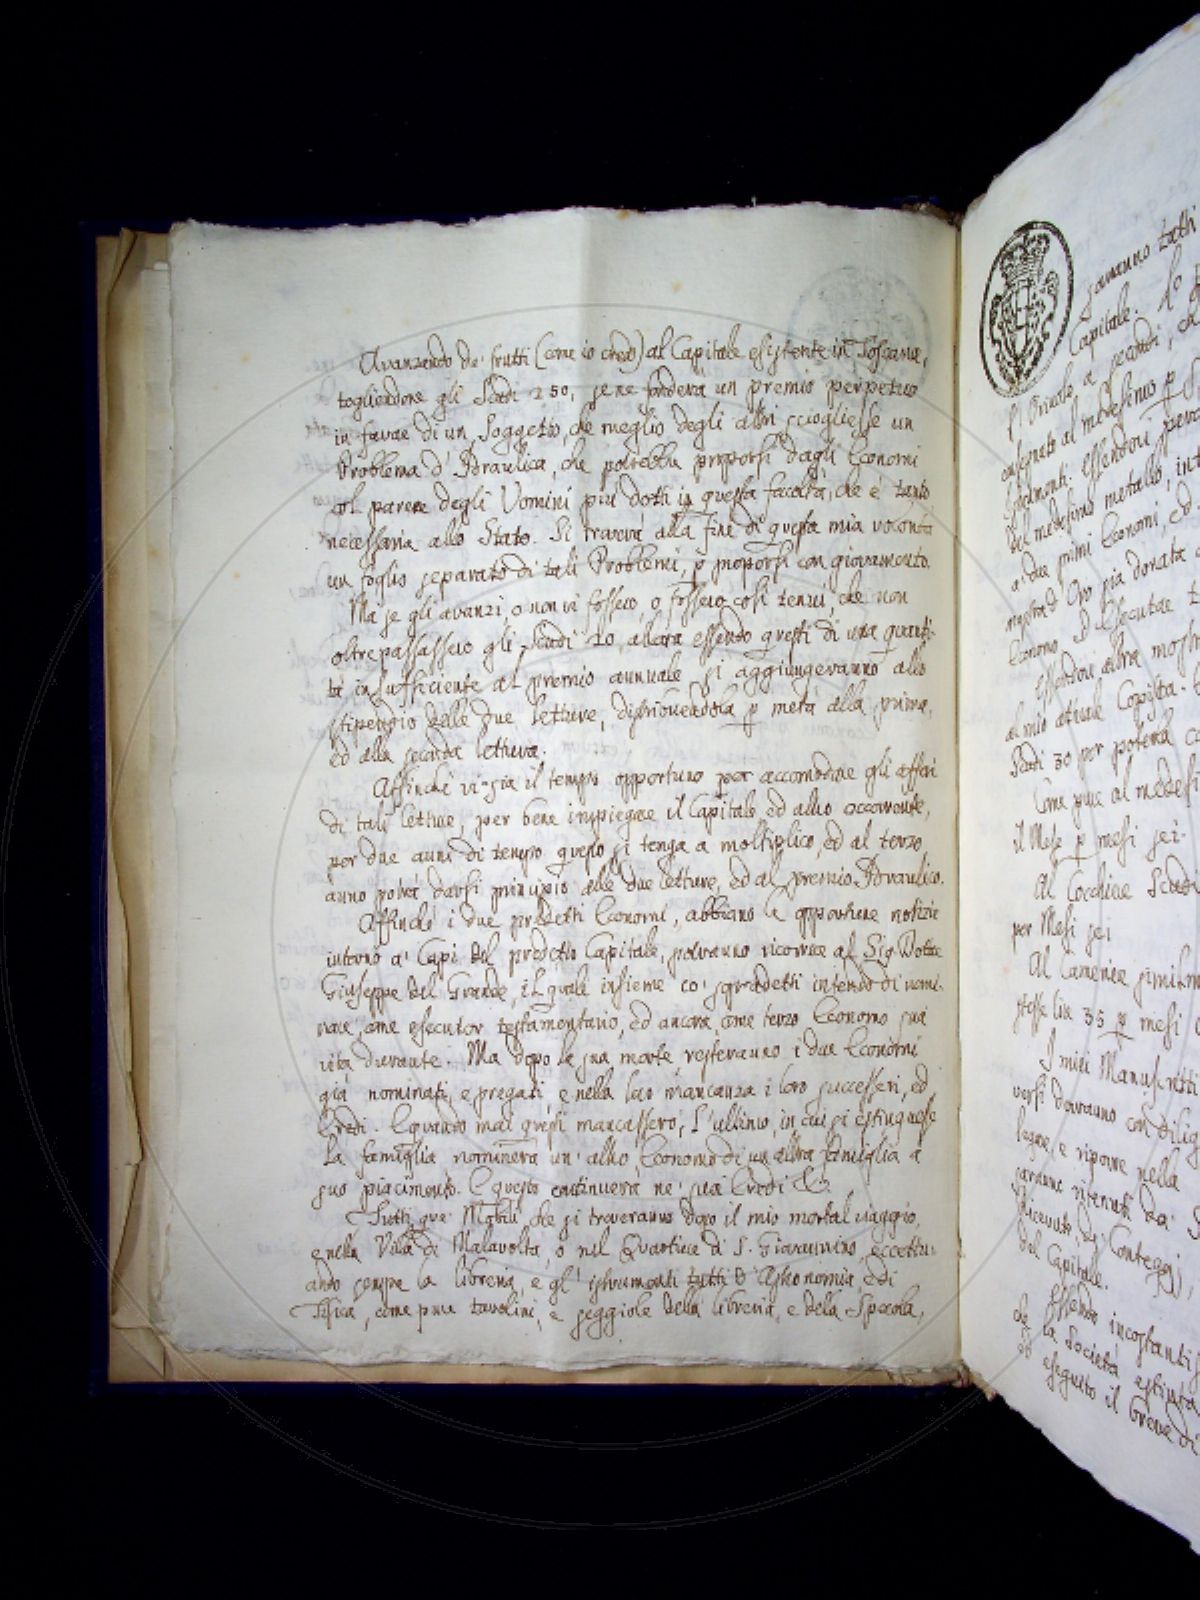 Avanzando de' frutti (come io credo) al Capitale esistente in Toscana,
togliendone gli Scudi 250, se ne fonderà un premio perpetuo
in favore di un Soggetto, che meglio degli altri sciogliesse un
Problema d'Idraulica, che potrebbe proporsi dagli Economi
col parere degli Uomini più dotti in questa facoltà, che è tanto
necessaria allo Stato. Si troverà alla fine di questa mia volontà
un foglio separato di tali Problemi, p proporsi con giovamento.
Ma se gli avanzi, o non vi fossero, o fossero così tenui, che non
oltrepassassero gli Scudi 20, allora essendo questi di una quanti-
tà insufficiente al premio annuale, si aggiungeranno allo
stipendio delle due letture, distribuendola p metà alla prima,
ed alla seconda lettura.
Affinchè vi sia il tempo opportuno per accomodare gli affari
di tali letture, per bene impiegare il Capitale ed altro occorrente,
per due anni di tempo questo si tenga a moltiplico, ed al terzo
anno potrà darsi principio alle due letture, ed al premio Idraulico.
Affinchè i due predetti Economi, abbiano le opportune notizie
intorno a' Capi del predetto Capitale, potranno ricorrere al Sig Dottre
Giuseppe del Grande, il quale insieme co' sopradetti intendo di nomi-
nare, come esecutor testamentario, ed ancora, come terzo Economo sua
vita durante. Ma dopo la sua morte resteranno i due Economi
già nominati, e pregati, e nella loro mancanza i loro successori, ed
Eredi. E quando mai questi mancassero, l'ultimo, in cui si estinguesse
la famiglia nominerà un' altro Economo di un altra famiglia a
suo piacimento. E questo continuerà ne' suoi Eredi &.
Tutti que' Mobili, che si troveranno dopo il mio mortal viaggio,
e nella Villa di Malavolta, o nel Quartiere di S. Giovannino, eccettu-
ando sempre la libreria, e gl' istrumenti tutti d'Astronomia, e di
Fisica, come pure tavolini, e seggiole della libreria, e della Specola,
saranno tutti
Capitale.
L'Oriuolo a secondi, ch
consegnato al medesimo p
essendovi
del medesimo metallo, int
a' due primi Economi, ed
mostra d'Oro sia donata
Economo ed Esecutore t
Essendovi altra most
al mio attuale Copista.
Scudi 30 per poterla
Come pure al medesi
il Mese p mesi sei.
Al Cocchiere Scudi
per Mesi sei
Al Cameriere similm
stesse lire 35 p mesi
I miei Manuscritti
versi dovranno con dilig
legare, e riporre nella
saranno ritenuti da' S
Ricevute, di Conteggj,
del Capitale.
Essendo incostanti
che la Società estinta
ed eseguito il Breve di